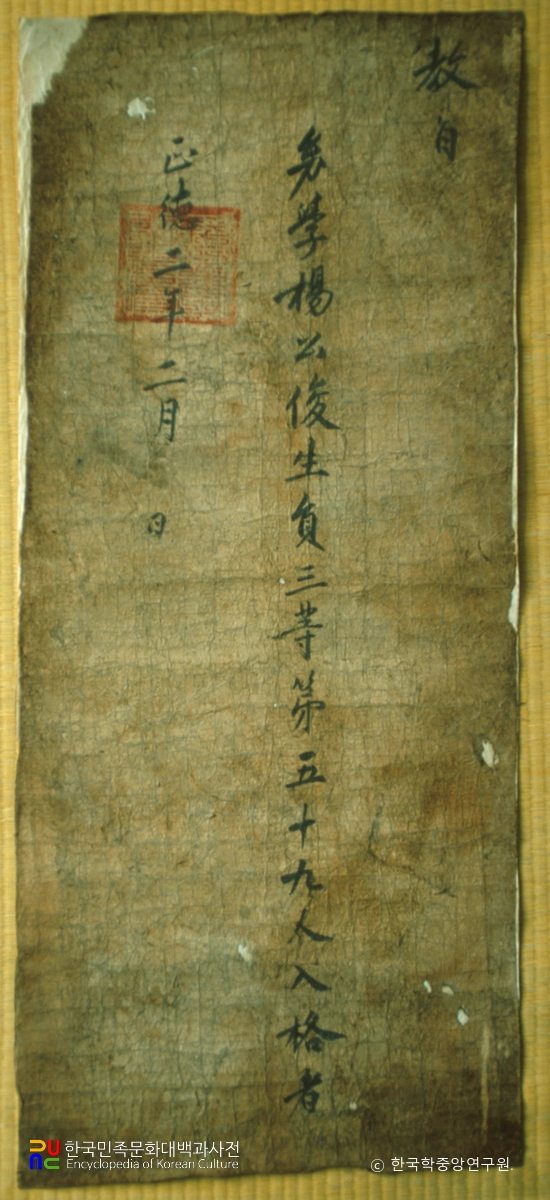 教旨
幼學楊公俊生員三等第五十九人入格者
正德二年二月　日
한국민족문화대백과사전
Encyclopedia of Korean Culture
© 한국학중앙연구원